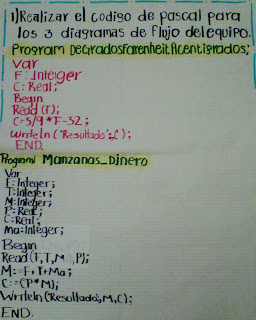 1) Realizar el codigo de pascal para
los 3 diagramas de flujo del equipo.
Program DeGradosFarenheitACentigrados;
Var
F: Integer
C: Real;
Begin
Read (F);
C=5/9*F-32;
Writeln ("Resultado",C);
END.
Program Manzanas_Dinero
Var
F: Integer;
T: Integer;
M: Integer;
P: Real;
C: Real;
Ma: Integer;
Begin
Read (F,T,M ,P);
M:=F+T+Ma;
C:=(P*M);
Writeln ("Resultado",M,C);
END.